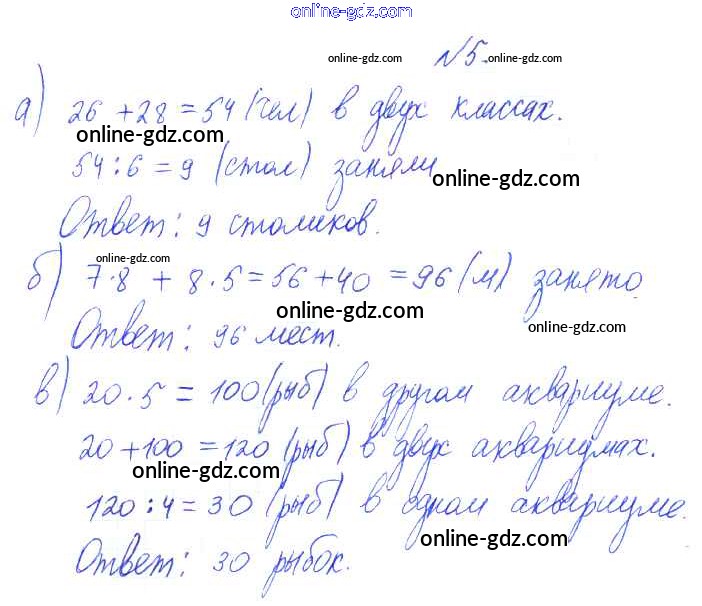 online-gdz.com
online-gdz.com №5. online-gdz.com
а) 26 + 28 = 54 (чел) в двух классах.
online-gdz.com
54 : 6 = 9 (стол) заняли
online-gdz.com
Ответ: 9 столиков.
online-gdz.com
б) 7 · 8 + 8 · 5 = 56 + 40 = 96 (м) занято.
online-gdz.com
online-gdz.com
Ответ: 96 мест.
в) 20 · 5 = 100 (рыб) в другом аквариуме.
20 + 100 = 120 (рыб) в двух аквариумах.
online-gdz.com
120 : 4 = 30 (рыб) в одном аквариуме.
online-gdz.com
Ответ: 30 рыбок.